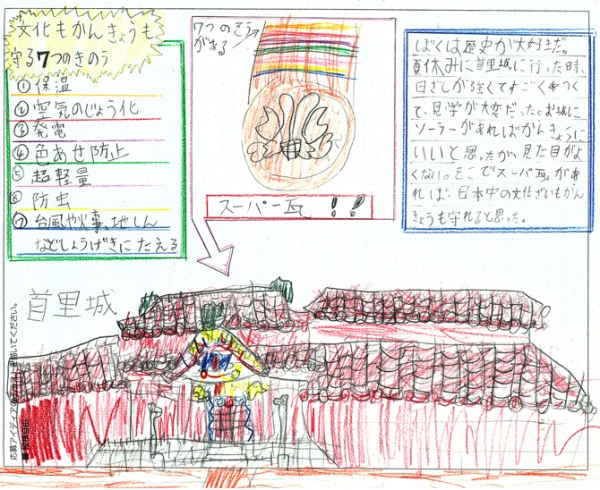 文化もかんきょうも
守る7つのきのう
①保温
②空気のじょう化
③発電
④色あせ防止
⑤超軽量
⑥防虫
⑦台風や火事、地しん
などしょうげきにたえる
7つのそう
がある
スーパー瓦!!
ぼくは歴史が大好きだ。
夏休みに首里城に行った時、
日ざしが強くてすごくあつく
て、見学が大変だった。お城に
ソーラーがあればかんきょうに
いいと思ったが、見た目がよ
くない。そこでスーパー瓦があ
れば、日本中の文化ざいもかん
きょうも守れると思った。
首里城
いてください。
応募アイディア